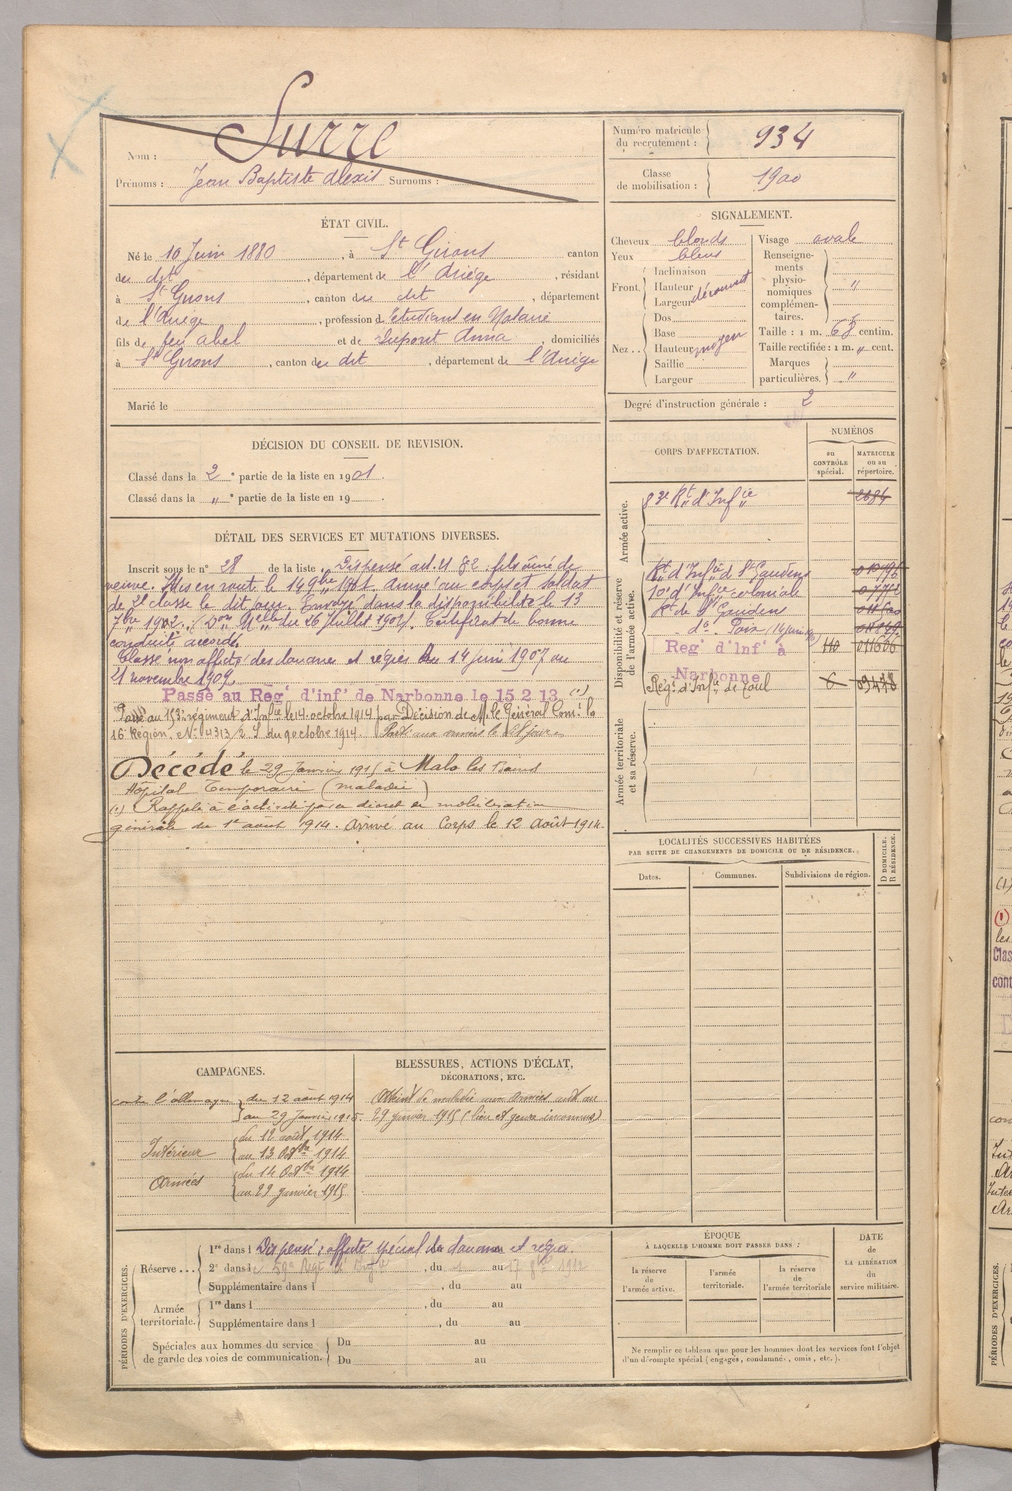 Nom : Surre
Prénoms : Jean Baptiste Alexis Surnoms :
Numéro matricule du recrutement : 934
Classe de mobilisation : 1900
ÉTAT CIVIL.
Né le 10 Juin 1880, à St Girons canton
du dit, département de l'Ariège, résidant
à St Girons, canton du dit, département
de l'Ariège, profession d'Etudiant en Notariat
fils de feu Abel et de Dupont Anna, domiciliés
à St Girons, canton du dit, département de l'Ariège
Marié le
SIGNALEMENT.
Cheveux blonds
Yeux bleus
Front. Inclinaison
Hauteur
Largeur découvert
Nez.. Dos
Base
Hauteur moyen
Saillie
Largeur
Visage ovale
Renseignements physionomiques complémentaires. "
Taille : 1 m. 63 centim.
Taille rectifiée : 1 m. " cent.
Marques particulières. "
Degré d'instruction générale : 2
DÉCISION DU CONSEIL DE REVISION.
Classé dans la 2e partie de la liste en 1901.
Classé dans la " e partie de la liste en 19
DÉTAIL DES SERVICES ET MUTATIONS DIVERSES.
Inscrit sous le n° 28 de la liste Dispensé art. 21 § 2 : fils aîné de
veuve. Mis en route le 14 9bre 1901. Arrivé au corps et soldat
de 2e classe le dit jour. Envoyé dans la disponibilité le 13
7bre 1902. du 16 Juillet 1904. Certificat de bonne
conduite accordé.
Classé non affecté des douanes et régies du 14 juin 1907 au
21 novembre 1909.
Passé au Regt d'inft de Narbonne le 15.2.13. (1)
Passé au 153e régiment d'Infie le 14 octobre 1914 par Décision de M. le Général Comt la
16e Région. N° 4313 2. S. du 9 octobre 1914. Parti aux armées le
Décédé le 29 Janvier 1915 à Malo les Bains
Hôpital Temporaire (maladie)
(1) Rappelé à l'activité par décret de mobilisation
générale du 1er août 1914. Arrivé au Corps le 12 Août 1914.
CORPS D'AFFECTATION.
NUMÉROS
au CONTRÔLE spécial.
MATRICULE ou au répertoire.
Armée active.
83e Rt d'Infie 2684
Disponibilité et réserve de l'armée active.
Rt d'Infie de St Gaudens
10e d'Infie coloniale
Rt de St Gaudens
do Foix
Regt d'Inft à Narbonne 110
Régt d'Infie de Toul 6
Armée territoriale et sa réserve.
LOCALITÉS SUCCESSIVES HABITÉES
PAR SUITE DE CHANGEMENTS DE DOMICILE OU DE RÉSIDENCE.
Dates.
Communes.
Subdivisions de région.
D DOMICILE. R RÉSIDENCE.
CAMPAGNES.
contre l'Allemagne du 12 août 1914
au 29 Janvier 1915.
Intérieur du 12 août 1914
au 13 Octbre 1914
Armées du 14 Octbre 1914
au 29 janvier 1915
BLESSURES, ACTIONS D'ÉCLAT,
DÉCORATIONS, ETC.
Atteint de maladie aux Armées
29 janvier 1915 (lieu et genre inconnus)
PÉRIODES D'EXERCICES.
Réserve...
1re dans l Dispensé : affecté spécial des douanes et régies.
2e dans l 59e Regt d'Infie, du au 17 1912
Supplémentaire dans l , du au
Armée territoriale.
1re dans l , du au
Supplémentaire dans l , du au
Spéciales aux hommes du service de garde des voies de communication.
Du au
Du au
ÉPOQUE
À LAQUELLE L'HOMME DOIT PASSER DANS :
la réserve de l'armée active.
l'armée territoriale.
la réserve de l'armée territoriale
DATE de LA LIBÉRATION du service militaire.
Ne remplir ce tableau que pour les hommes dont les services font l'objet
d'un décompte spécial (engagés, condamnés, omis, etc.).